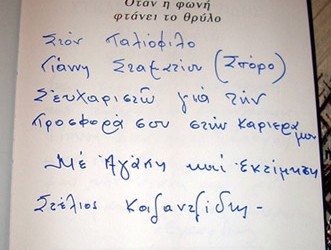 Όταν η φωνή
φτάνει το θρύλο
Στόν Παλιόφιλο
Γιάννη Σταματίου (Σπόρο)
Σ'ευχαριστῶ γιά τήν
Προσφορά σου στήν Καριερα μου
Μέ Ἀγάπη καί Ἐκτίμηση
Στέλιος Καζαντζίδης -